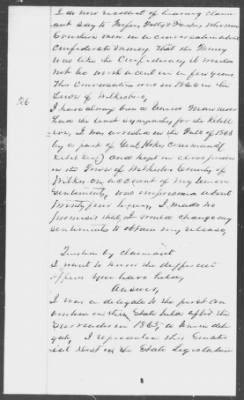 I do now recollect of hearing claim
ant say to
Cousins men in a conversation about
Confederate money that the money
was like the Confederacy it would
not be worth a cent in a few years.
This conversation was in 1862 in the
town of Wilkesboro,
26
I have always been a Union man never
had the least sympathy for the Rebell
ion, I was arrested in the Fall of 1863
by a part of Genl Hokes command (
Rebel) and kept in close prison
in the Town of Wilkesboro County of
Wilkes on account of my Union
Sentiments, was imprisoned about
twenty four hours, I made no
promises that I would change my
sentiments to obtain my release,
Question by claimant
I want to know the different
offices you have held,
Answer,
I was a delegate to the first con
vention in this State held after the
surrender in 1865, a Union dele
gate, I represented this Senato
rial Dist in the State Legislature